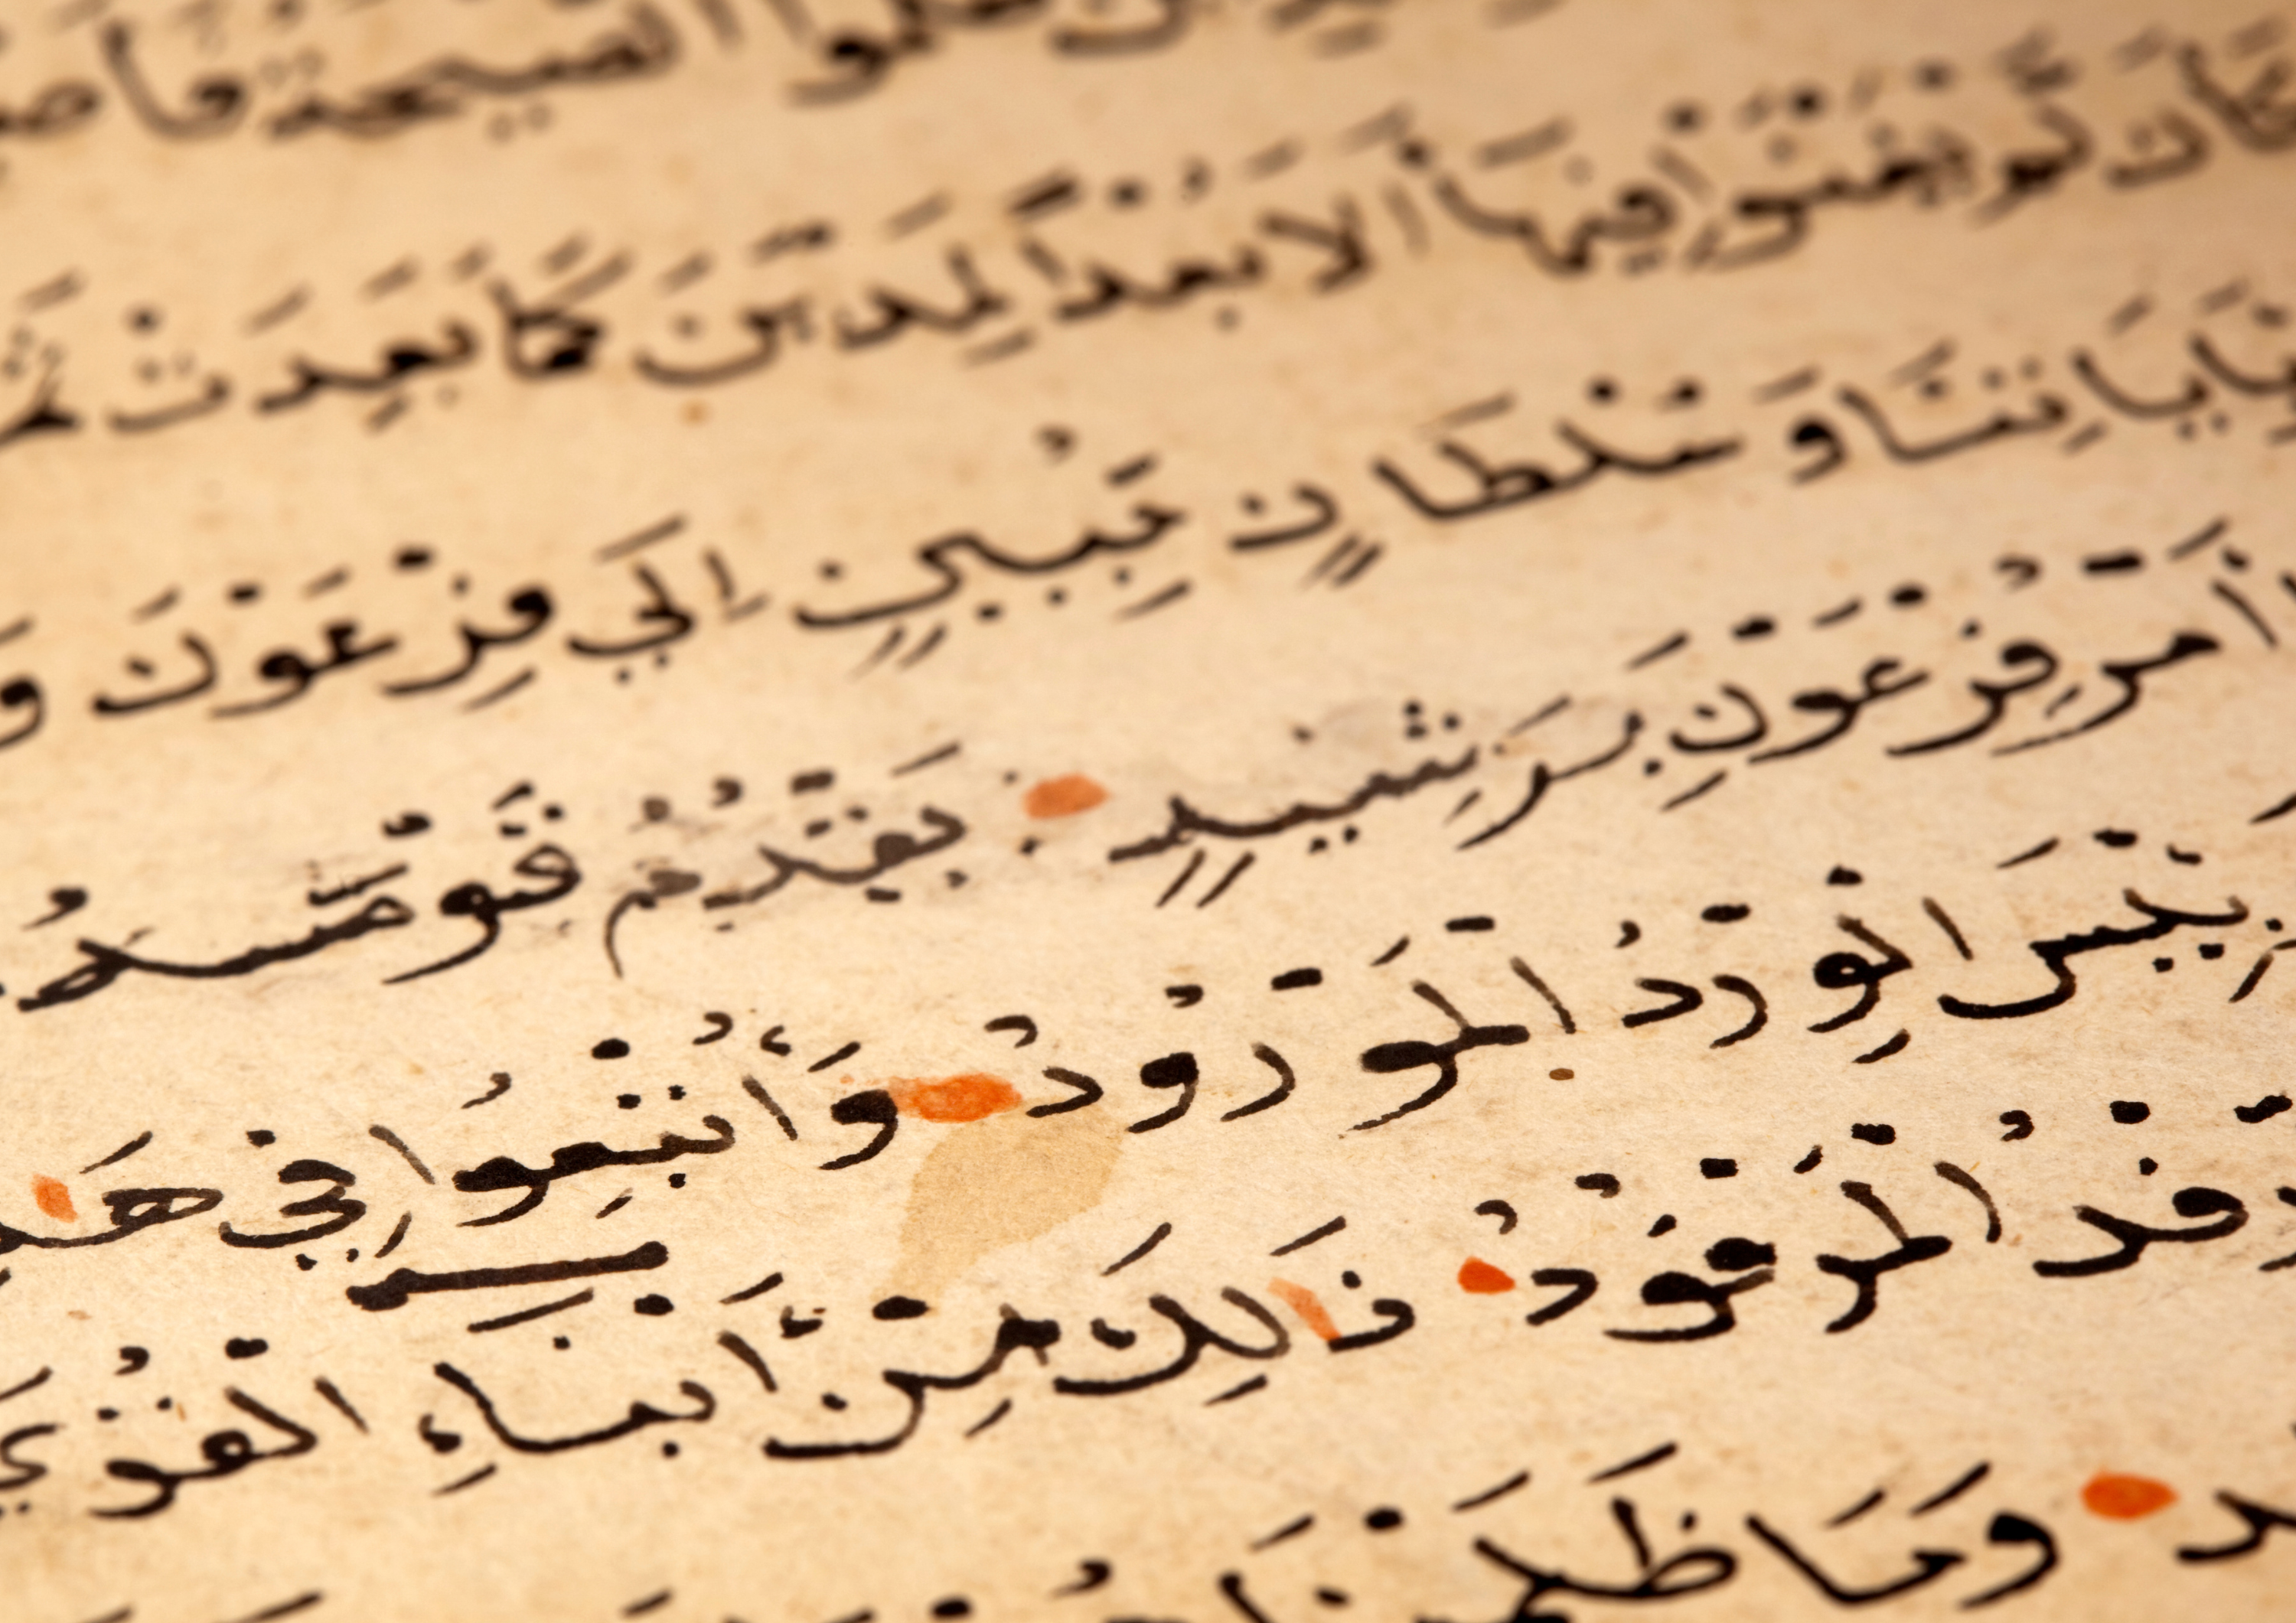 ظلموا الصيحة فأصبـ
كَأَن لَّمْ يَغْنَوْا فِيهَا أَلَا بُعْدًا لِمَدْيَنَ كَمَا بَعِدَتْ ثَمُـ
بِـَٔايَاتِنَا وَسُلْطَانٍ مُّبِينٍ اِلَي فِرْعَوْنَ وَ
أَمْرُ فِرْعَوْنَ بِرَشِيدٍ يَقْدُمُ قَوْمَهُ
بِيسَ الْوِرْدُ الْمَوْرُودُ وَأُتْبِعُوا فِي هَـٰذِ
رِّفْدُ الْمَرْفُودُ ذَٰلِكَ مِنْ أَنْبَاءِ الْقُرَي
ـد وَمَا ظَلَمْنَا